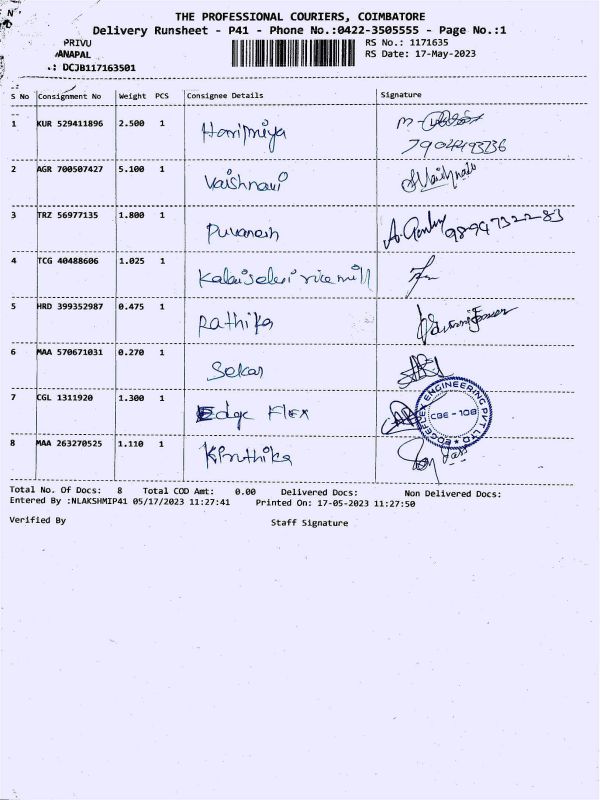 THE PROFESSIONAL COURIERS, COIMBATORE
Delivery Runsheet - P41 - Phone No.:0422-3505555 - Page No.:1
PRIVU
RS No.: 1171635
ANAPAL
RS Date: 17-May-2023
.: DCJB117163501
S No Consignment No Weight PCS Consignee Details Signature
1 KUR 529411896 2.500 1 Haripriya
2 AGR 700507427 5.100 1 Vaishnavi
3 TRZ 56977135 1.800 1 Puvanesh 9894732283
4 TCG 40488606 1.025 1 Kalaiselvi rice mill
5 HRD 399352987 0.475 1 Rathika
6 MAA 570671031 0.270 1 Sekar
7 CGL 1311920 1.300 1 Edge Flex
EDGEFLEX ENGINEERING PVT LTD
CBE - 108
8 MAA 263270525 1.110 1 Kiruthika
Total No. Of Docs: 8 Total COD Amt: 0.00 Delivered Docs: Non Delivered Docs:
Entered By :NLAKSHMIP41 05/17/2023 11:27:41 Printed On: 17-05-2023 11:27:50
Verified By Staff Signature